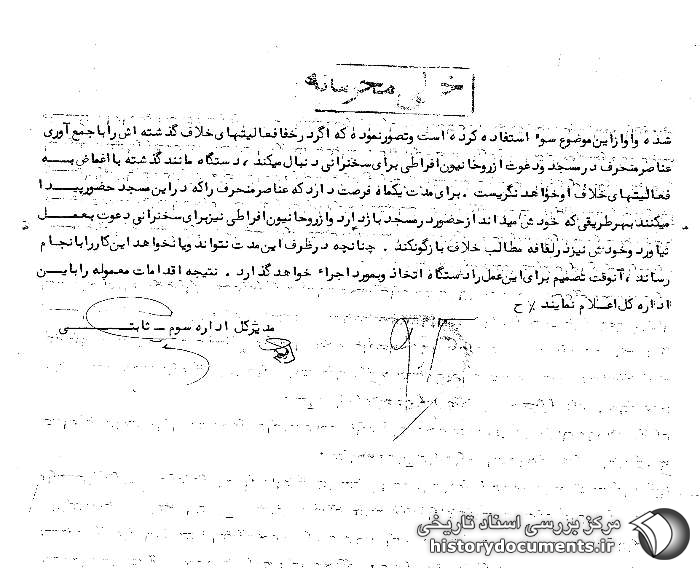 خیلی محرمانه
شده و او از این موضوع سوء استفاده کرده است و تصور نموده که اگر در خفا فعالیتهای خلاف گذشته اش را با جمع آوری
عناصر منحرف در مسجد و دعوت از روحانیون افراطی برای سخنرانی دنبال میکند ، دستگاه مانند گذشته با اغماض بسه
فعالیتهای خلاف او خواهد نگریست . برای مدت یکماه فرصت دارد که عناصر منحرف را که در این مسجد حضور پیدا
میکنند بهر طریقی که خودش میداند از حضور در مسجد باز دارد و از روحانیون افراطی نیز برای سخنرانی دعوت بعمل
نیاورد و خودش نیز در لفافه مطالب خلاف بازگو نکند . چنانچه در ظرف این مدت نتواند و یا نخواهد این کار را بانجام
رساند ، آنوقت تصمیم برای این عمل را دستگاه اتخاذ و بمورد اجراء خواهد گذارد . نتیجه اقدامات معموله را باین
اداره کل اعلام نمایند ٪ ح
مدیر کل اداره سوم - ثابتی
مرکز بررسی اسناد تاریخی
historydocuments.ir